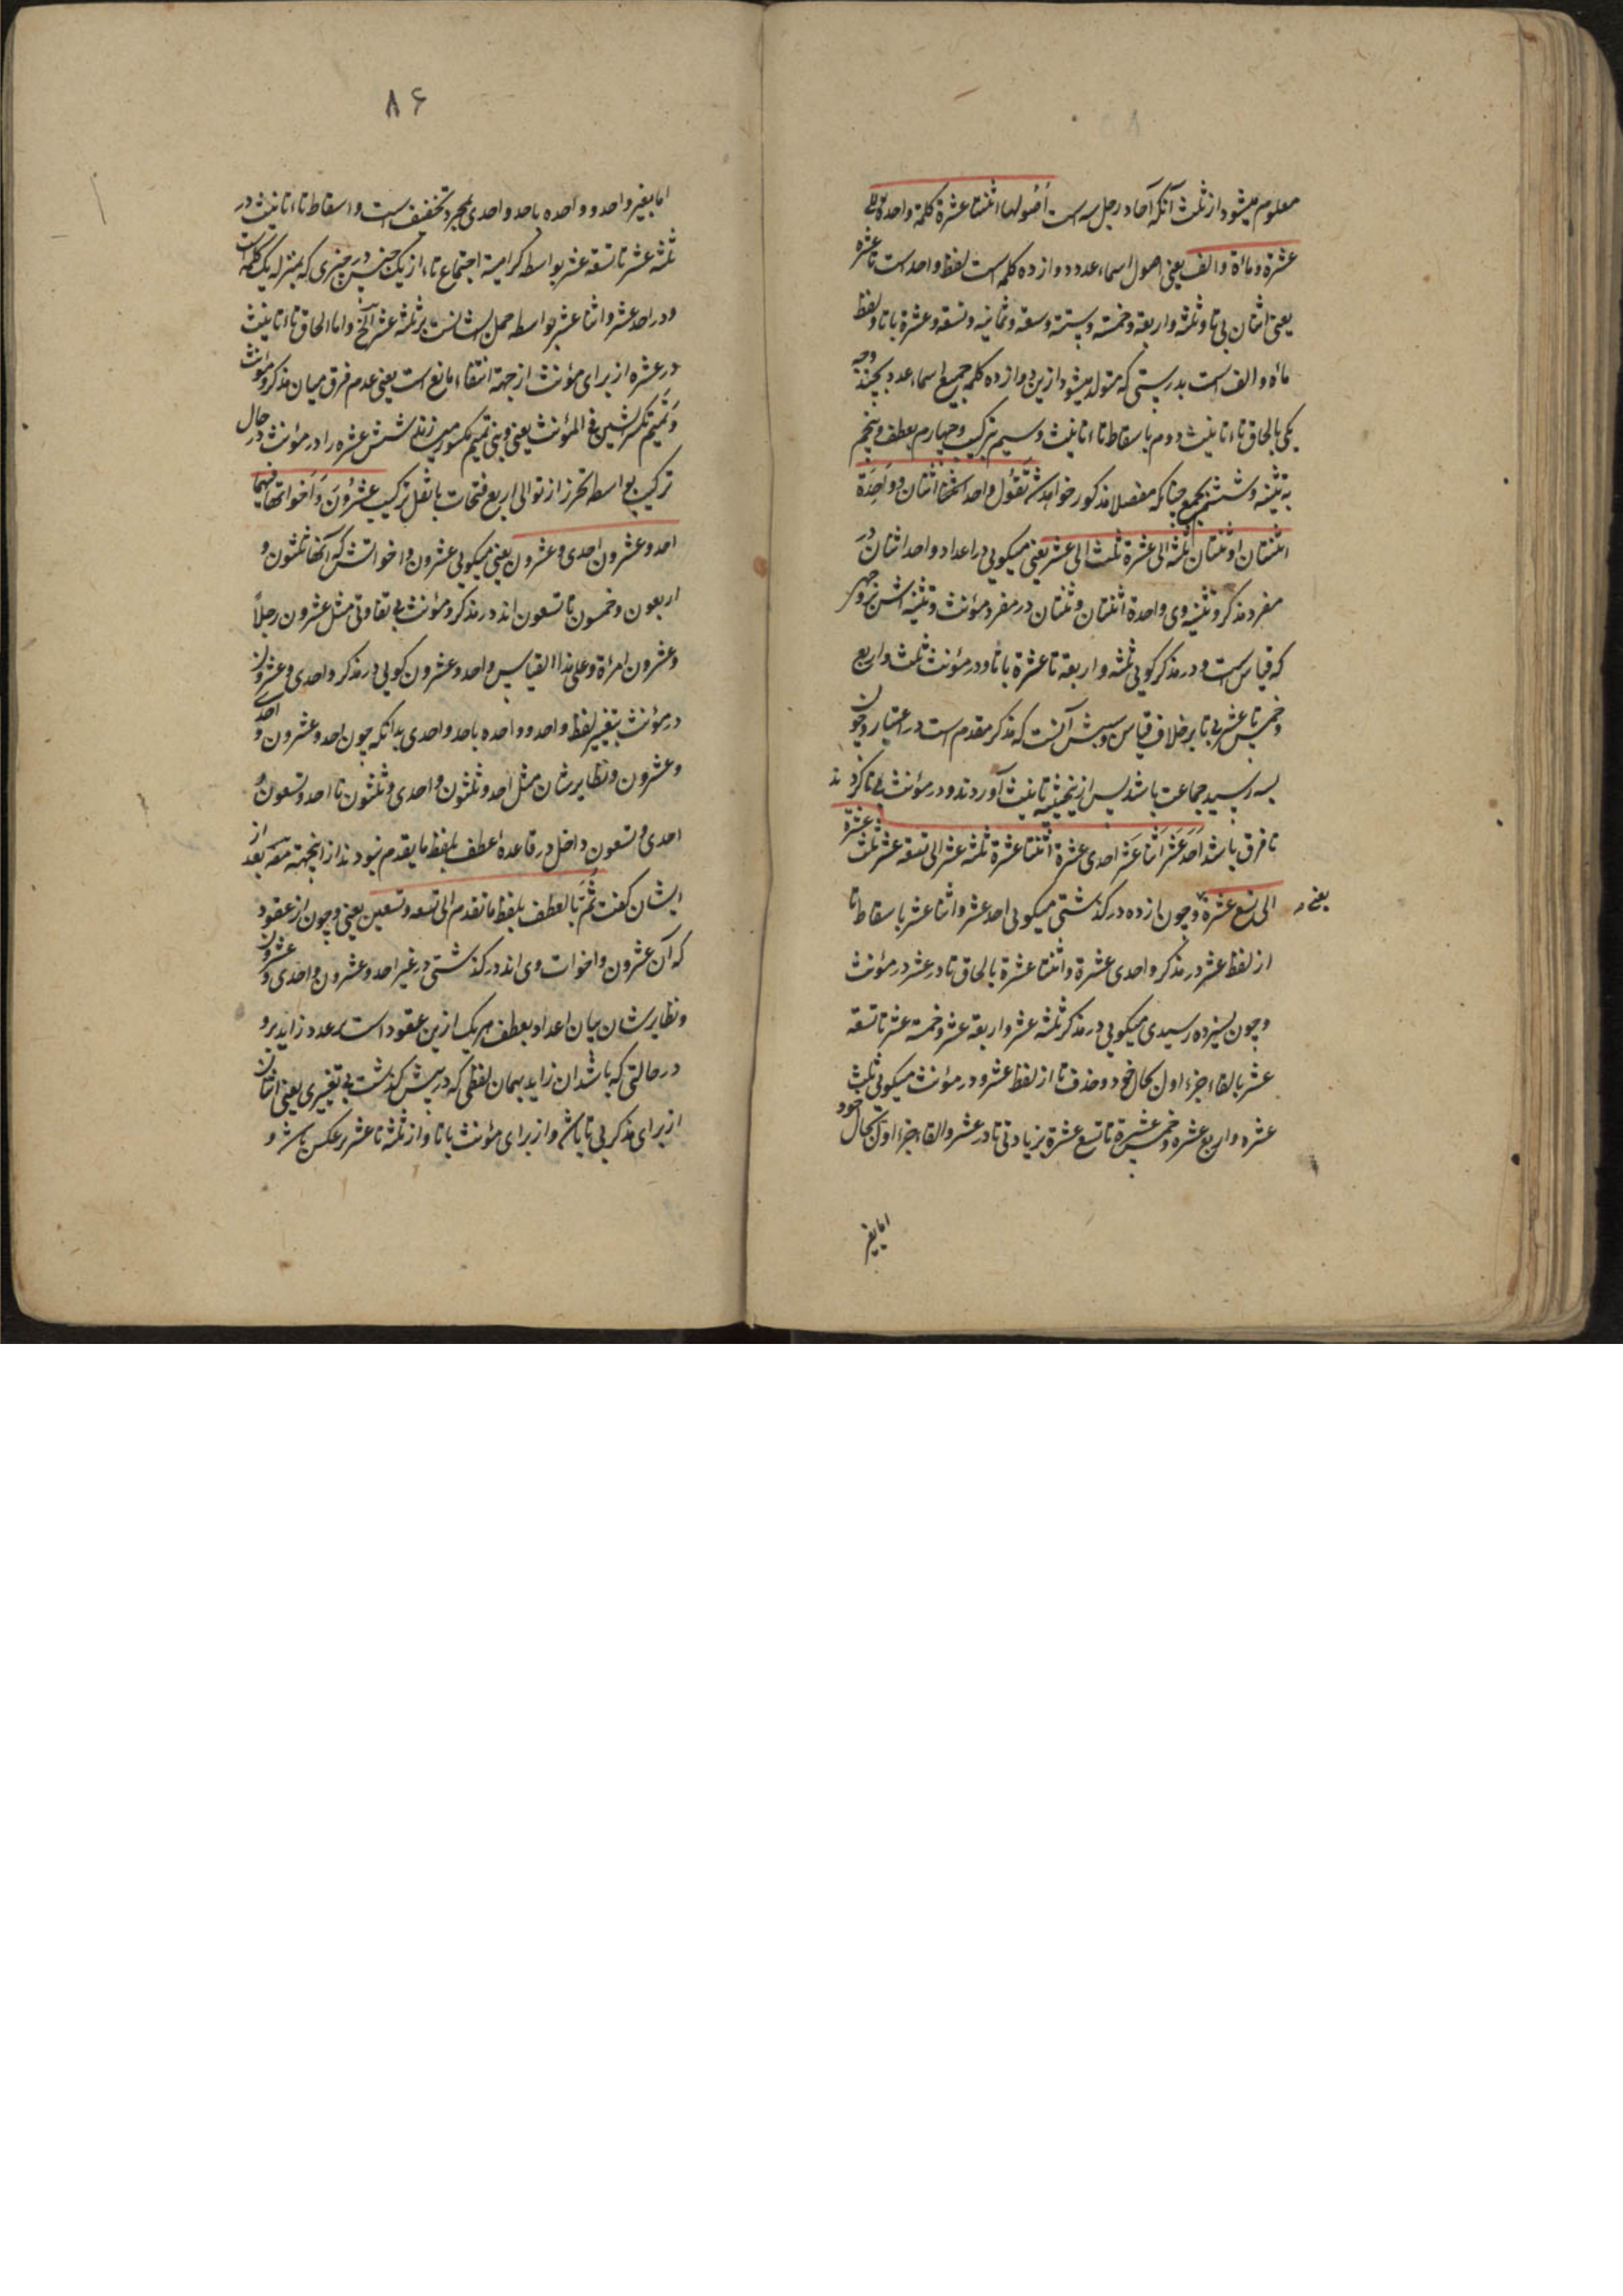 معلوم میشود از ثلث آنکه آحاد رجل سه است أُصُولها اثنتا عشرة کلمة واحدة الی
عشرة و مائة و الف یعنی اصول اسماء عدد دوازده کلمه است لفظ واحد است تا عشرة
یعنی اثنان بی تا و ثلثه و اربعة و خمسة و ستة و سبعة و ثمانیه و تسعة و عشرة با تا و لفظ
مائه و الف است بدرستی که متولد میشود ازین دوازده کلمه جمیع اسماء عدد بچند وجه
یکی بالحاق تاء تانیث دوم باسقاط تاء تانیث و سیم بترکیب و چهارم بعطف و پنجم
به تثنیه و ششم بجمع چنانکه مفصلا مذکور خواهد شد تَقُول واحد اثنان و وَاحِدَة
اثنتان او ثنتان ثلثه الی عشرة ثلث الی عشر یعنی میکویی در اعداد واحد اثنان در
مفرد مذکر و تثنیه وی واحدة اثنتان و ثنتان در مفرد مؤنث و تثنیه اش
که قیاس است و در مذکر کویی ثلثه و اربعة تا عشرة با تا و در مؤنث ثلث و اربع
و خمس تا عشر بی تا بر خلاف قیاس و سببش آنست که مذکر مقدم است در اعتبار و چون
بسه رسید جماعت باشد پس ازین حیثیه تانیث آوردند و در مؤنث بی تا کردند
تا فرق باشد اَحَد عَشَر اثنا عَشَر احدی عشرة اثنتا عشرة ثلثه عشر الی تسعة عشر ثلث عشرة
الی تسع عشرة و چون از ده در کذشتی میکویی احد عشر و اثنا عشر باسقاط تا
یعنی
از لفظ عشر در مذکر و احدی عشرة و اثنتا عشرة بالحاق تا در عشر در مؤنث
و چون بسیزده رسیدی میکویی در مذکر ثلثه عشر و اربعة عشر و خمسة عشر تا تسعة
عشر بالقاء جزء اول بحال خود و حذف تا از لفظ عشر و در مؤنث میکویی ثلث
عشره و اربع عشره و خمس عشرة تا تسع عشرة بزیادتی تا در عشر و القاء جزء اول بحال خود
اما تغیر
۸۶
اما تغیر واحد و واحده باحد و احدی بمجرد تخفیف است و اسقاط تاء تانیث در
ثلثه عشر تا تسعة عشر بواسطه کراهیة اجتماع تاء از یک جنس در چیزی که بمنزله یک کلمه است
و در احد عشر و اثنا عشر بواسطه حمل ایشانست بر ثلثه عشر الخ و اما الحاق تاء تانیث
در عشره از برای مؤنث از جهة انتفاء مانع است یعنی عدم فرق میان مذکر و مؤنث
وَ تَمیم تکسر الشین فی المؤنث یعنی و بنی تمیم مکسور میسازند شین عشره را در مؤنث در حال
ترکیب بواسطه تحرز از توالی اربع فتحات با ثقل ترکیب عشرُونَ وَ اَخواتها فیهما
احد و عشرون احدی و عشرون یعنی میکویی عشرون و اخواتش که آنها ثلثون و
اربعون و خمسون تا تسعون اند در مذکر و مؤنث بی تفاوتی مثل عشرون رجلاً
و عشرون امرأة و علی هذا القیاس و احد و عشرون کویی در مذکر و احدی و عشرون
در مؤنث بتغییر لفظ واحد و واحده باحد و احدی بدانکه چون احد و عشرون و احدی
و عشرون و نظایر شان مثل احد و ثلثون و احدی و ثلثون تا احد و تسعون و
احدی و تسعون داخل در قاعدهٔ عطف بلفظ ما یقدم نبودند از اینجهة بعد از
ایشان کفت ثُمَ بالعطف بلفظ ما تقدم الی تسعه و تسعین یعنی و چون از عقود
که آن عشرون و اخوات وی اند در کذشتی در غیر احد و عشرون و احدی و عشرون
و نظایر شان بیان اعداد بعطف هر یک ازین عقود است بر عدد زاید برو
در حالتی که باشد آن زاید بهمان لفظی که در پیش کذشت بی تغییری یعنی اثنان
از برای مذکر بی تا باشد و از برای مؤنث با تا و از ثلثه تا عشر بر عکس باشد و